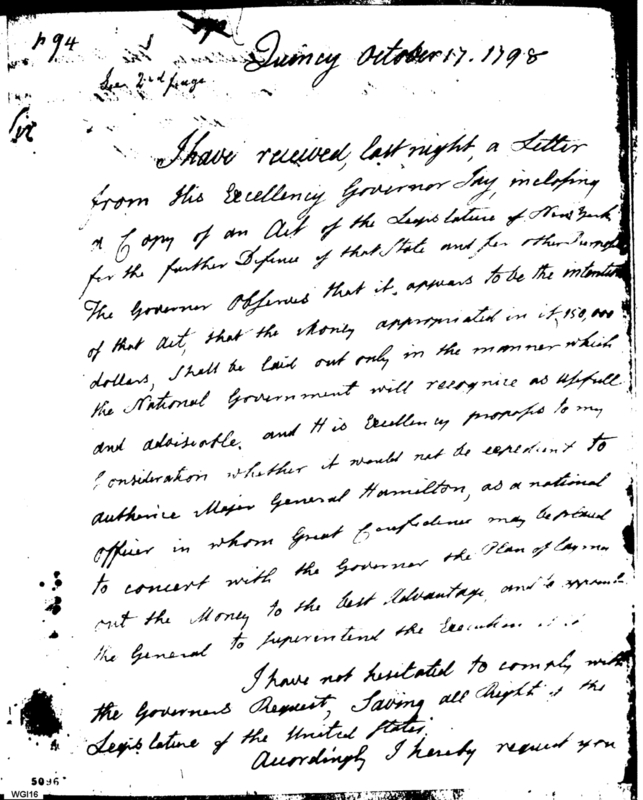 p 94
Quincy October 17. 1798
See 2nd page
Sir
I have received, last night, a Letter
from His Excellency Governor Jay, inclosing
a Copy of an Act of the Legislature of New York
for the further Defence of that State and for other
The Governor observes that it appears to be the intention
of that Act, that the Money appropriated in it, 150,000
dollars, shall be laid out only in the manner which
the National Government will recognize as usefull
and adviseable. and His Excellency proposes to my
Consideration whether it would not be expedient to
authorize Major General Hamilton, as a national
officer in whom Great Confidence may be placed
to concert with the Governor the Plan of laying
out the Money to the best Advantage, and to appoint
the General to superintend the Execution of it
I have not hesitated to comply with
the Governors Request, Saving all Right of the
Legislature of the United States.
Accordingly I hereby request you
5096
WGI16